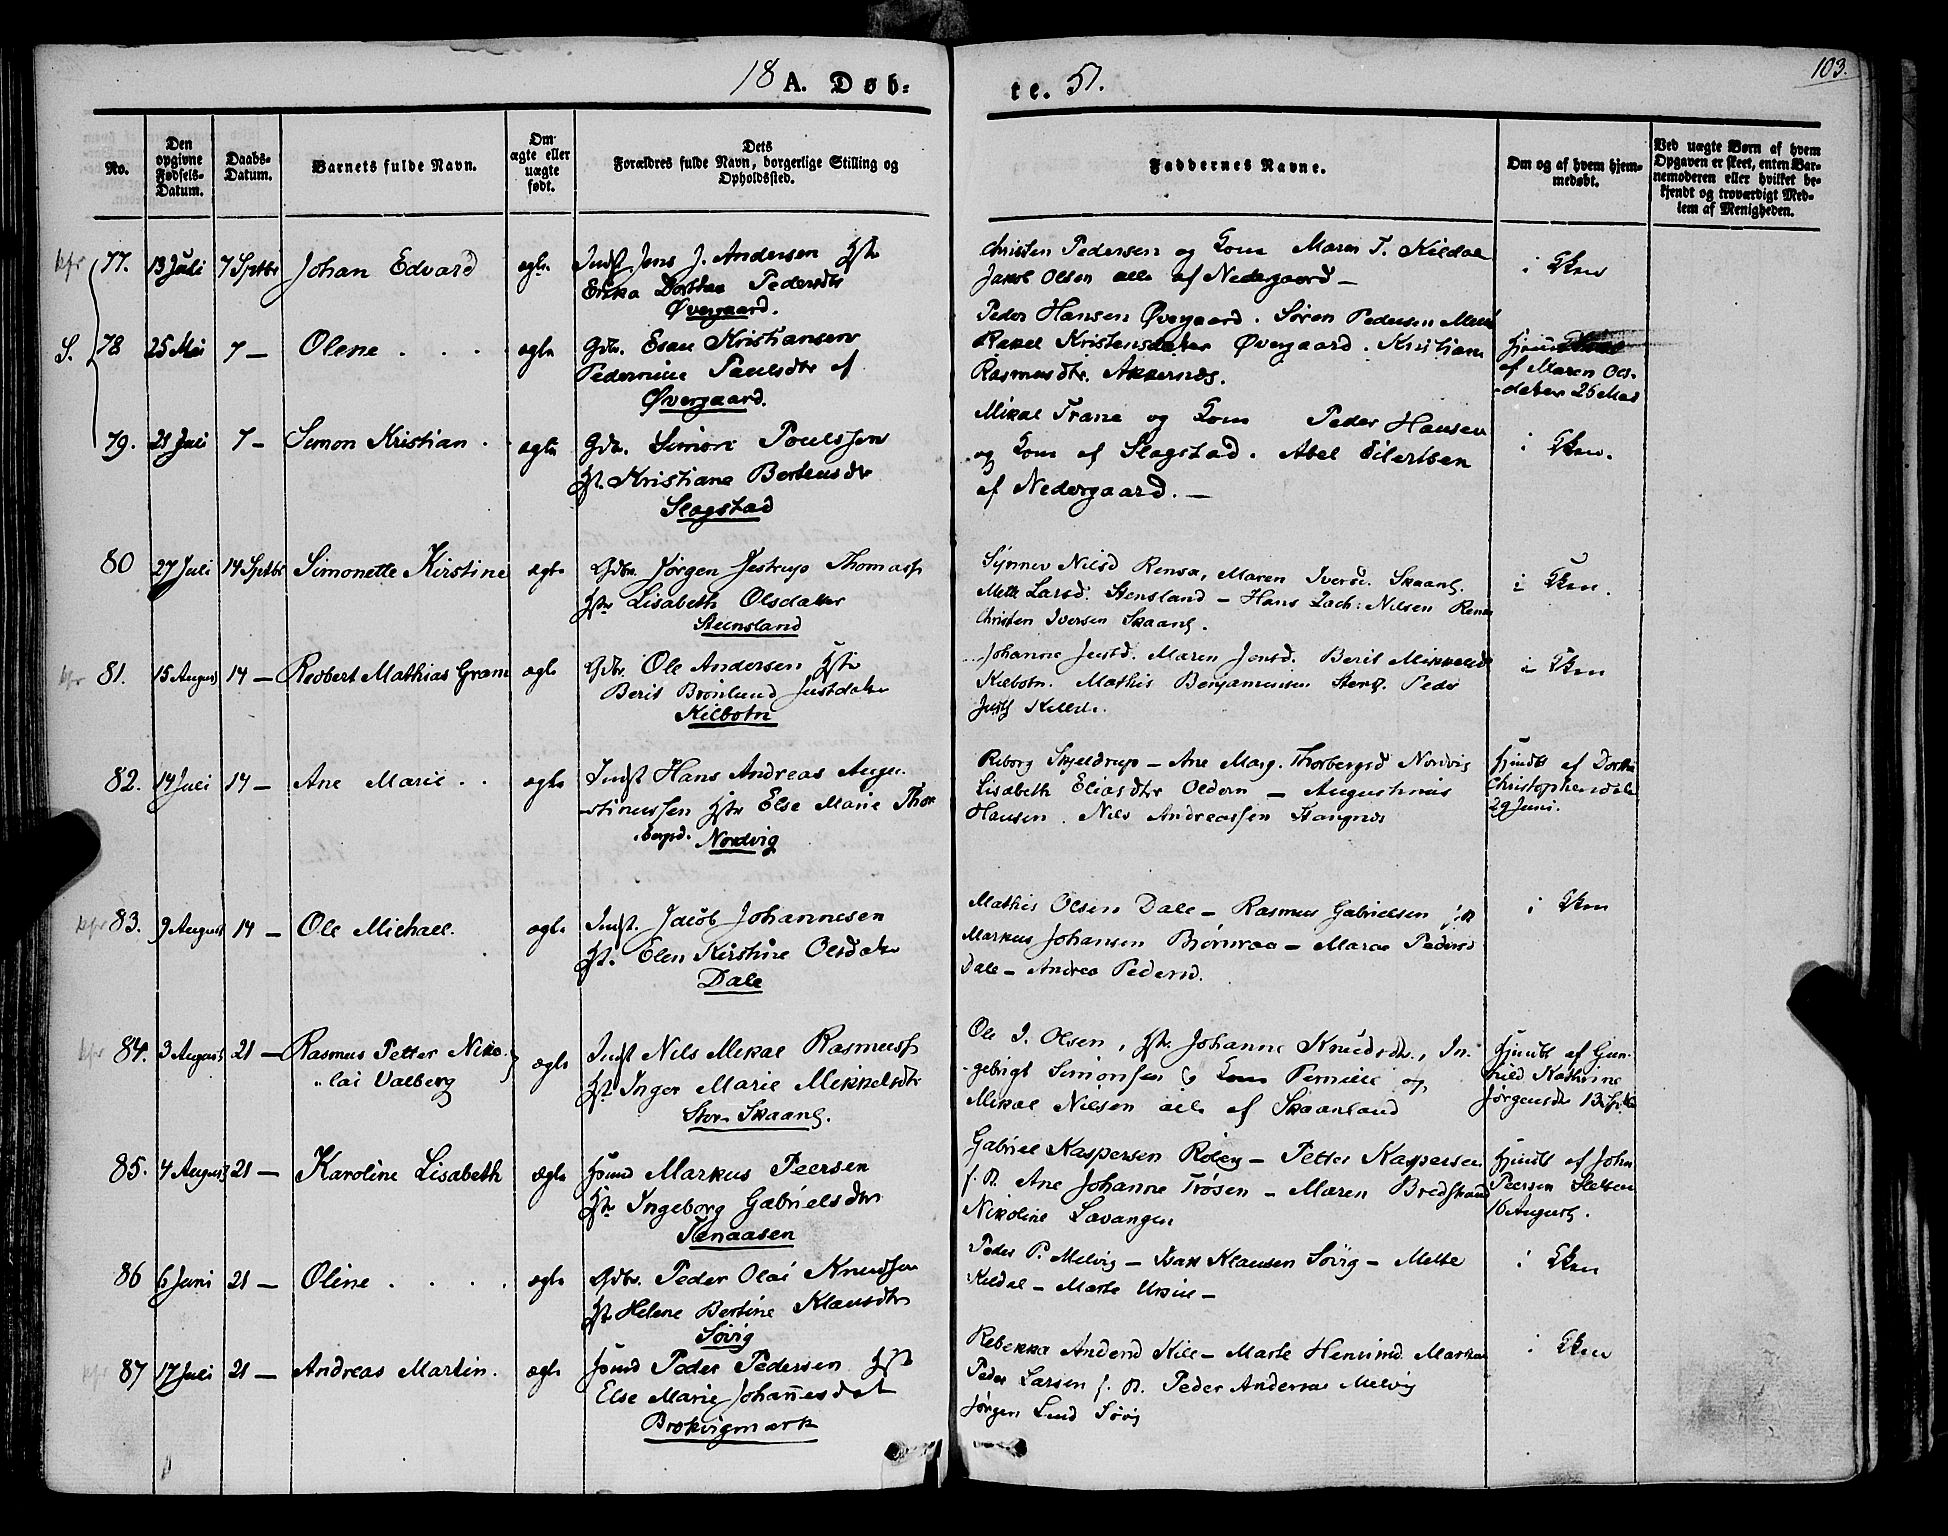 103.
18 A. Døb: te. 51.
No.
Den opgivne Fødsels-Datum.
Daabs-Datum.
Barnets fulde Navn.
Om ægte eller uægte født.
Dets Forældres fulde Navn, borgerlige Stilling og Opholdssted.
Faddernes Navne.
Om og af hvem hjem-medøbt.
Ved uægte Børn af hvem Opgaven er skeet, enten Bar-nemoderen eller hvilket be-kjendt og troværdigt Med-lem af Menigheden.
77. 13 Juli 7 Septbr Johan Edvard ægte
Indst Jens J. Andersen Hst
Erika Dorthea Pedersdtr
Øvergaard.
Christen Pedersen og Kone Maren T. Kildal
Jakob Olsen alle af Nedergaard —
i Kken
S. 78 25 Mai 7 — Olene . . . ægte
Gdbr. Esau Kristiansen
Pedernille Paulsdtr af
Øvergaard.
Peder Hansen Øvergaard. Søren Pedersen
Rakel Kristensdatter Øvergaard. Kristiane
Rasmusdtr. Akkernæs.
af Maren Ols-
-datter 25 Mai
79. 21 Juli 7 — Simon Kristian . ægte
Gdbr. Simon Poulssen
Hst. Kristiane Berteusdtr
Slagstad
Mikal Trane og Kone Peder Hansen
og Kone af Slagstad. Abel Eilertsen
af Nedergaard. —
i Kken.
80 27 Juli 14 Septbr Simonette Kirstine ægte
Gdbr. Jørgen Jestrup Thomass
Hstr Lisabeth Olsdatter
Steensland
Synnev Nilsd Rensa, Maren Iversd. Skaanl.
Mette Larsd. Stensland — Hans Zach: Nilsen Rensa
Christen Iversen Skaanl.
i Kken.
81. 15 August 14 — Redbert Mathias Gram ægte
Gdbr. Ole Andersen Hstr
Berit Brønlund Justdatter
Kilbotn
Johanne Justd. Maren Jensd. Berit Mikkelsd
Kilbotn. Mathis Benjaminsen Peder
i Kken
82. 14 Juli 14 — Ane Marie . . ægte
Indst Hans Andreas Augu-
-stinussen Hstr Else Marie Thor
bergsd. Nordvig
Reborg Skjeldrup — Ane Marg. Thorbergsd Nordvig
Lisabeth Eliasdtr Oldern — Augustinus
Hansen. Nils Andreassen Kongnæs
Hjmdbt af Dorthe
Christophersdatr
29 Juni.
83. 9 August 14 — Ole Michael. ægte
Indst. Jacob Johannesen
Hst. Elen Kirstine Olsdatter
Dale
Mathis Olsen Dale — Rasmus Gabrielsen
Markus Johansen Bjørnraa — Maren Pedersd
Dale — Andrea Pedersd.
i Kken
84. 3 August 21 — Rasmus Petter Niko-
lai Valberg ægte
Indst Nils Mikal Rasmuss
Hst Inger Marie Mikkelsdtr
Stor Skaanl.
Ole J. Olsen, Hst. Johanne Knudsdtr, In-
-gebrigt Simonsen & Kone Pernille og
Mikal Nilsen alle af Skaanland
Hjmdbt af Gun-
hild Kathrine
Jørgensdtr 13
85. 4 August 21 — Karoline Lisabeth ægte
Husmd Markus Peersen
Hst Ingeborg Gabrielsdtr
Tenaasen
Gabriel Kaspersen Rolley — Petter Kaspersen
Ane Johanne Trøsen — Maren Bredstrand
Nikoline Lavangen
Hjmdbt af John
Peersen
16 August.
86 6 Juni 21 — Oline . . . . ægte
Gdbr. Peder Olai Knudsen
Hst Helene Bertine Klausdtr
Søvig
Peder P. Melvig — Isak Klausen Søvig — Mette
Kildal — Marte —
i Kken
87 17 Juli 21 — Andreas Martin. ægte
Husmd Peder Pedersen Hst
Else Marie Johannesdat
Brokvigmark
Rebekka Andersd Kile — Marte Henriksd.
Peder Larsen Peder Andersen Melvig
Jørgen Lund Søvig
i Kken